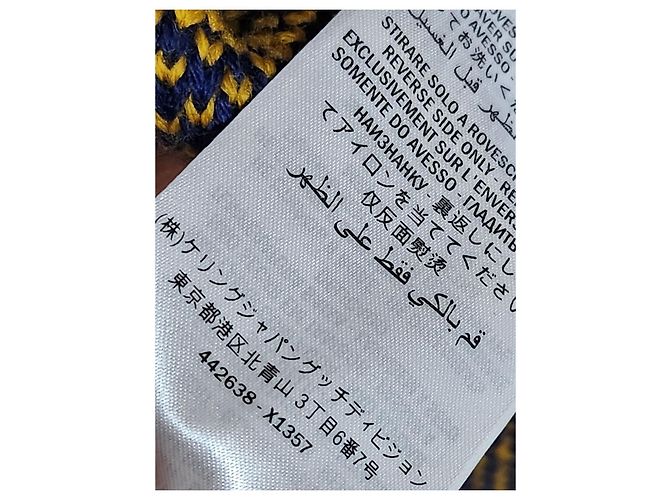 AVER SU
O AVESSO -
てお洗いく
الظهر قبل الغسيل
STIRARE SOLO A ROVESC
REVERSE SIDE ONLY - RE
EXCLUSIVEMENT SUR L'ENVER
SOMENTE DO AVESSO - ГЛАДИТЬ
НАИЗНАНКУ - 裏返しにし
てアイロンを当ててくださ
仅反面熨烫
قم بالكي فقط على الظهر
(株)ケリングジャパングッチディビジョン
東京都港区北青山3丁目6番7号
442638 - X1357